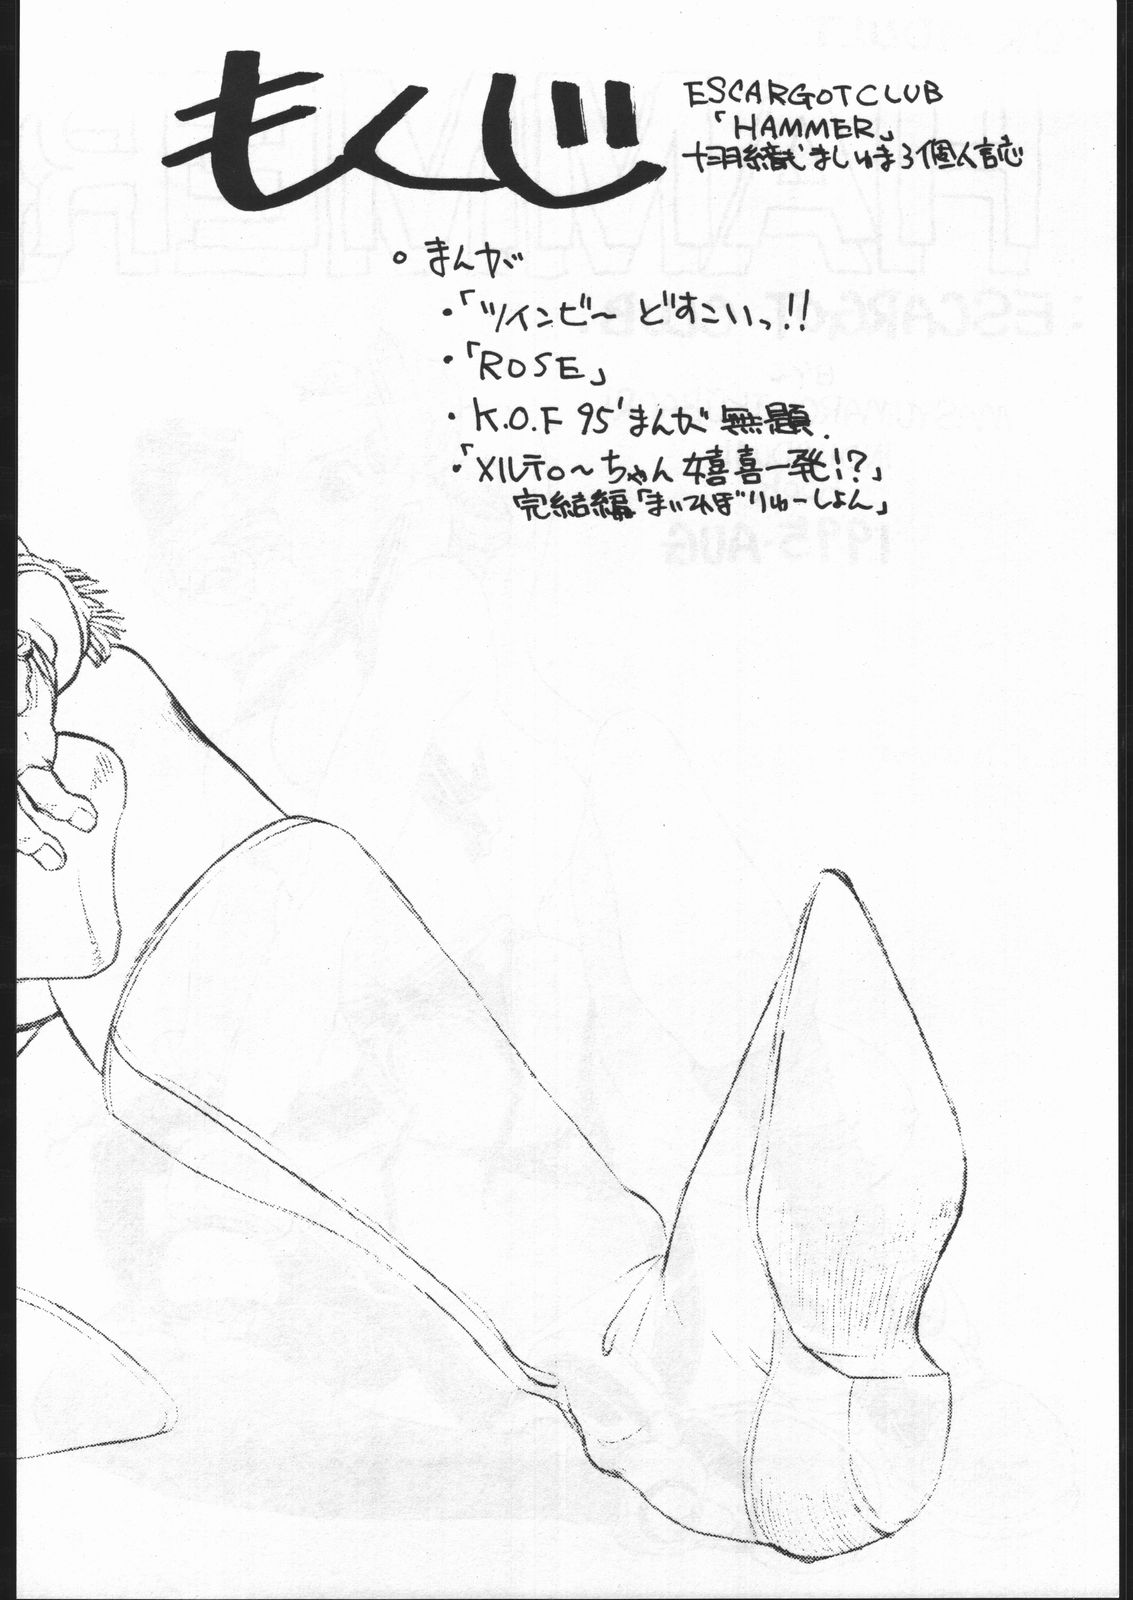 もくじ
ESCARGOT CLUB
「HAMMER」
ましゅまろ個人誌
・まんが
・「ツインビ〜 どすこいっ!!
・「ROSE」
・K.O.F 95'まんが 無題.
・「メルティ〜ちゃん 嬉喜一発!?」
完結編「まいてれぽ りゅーしょん」